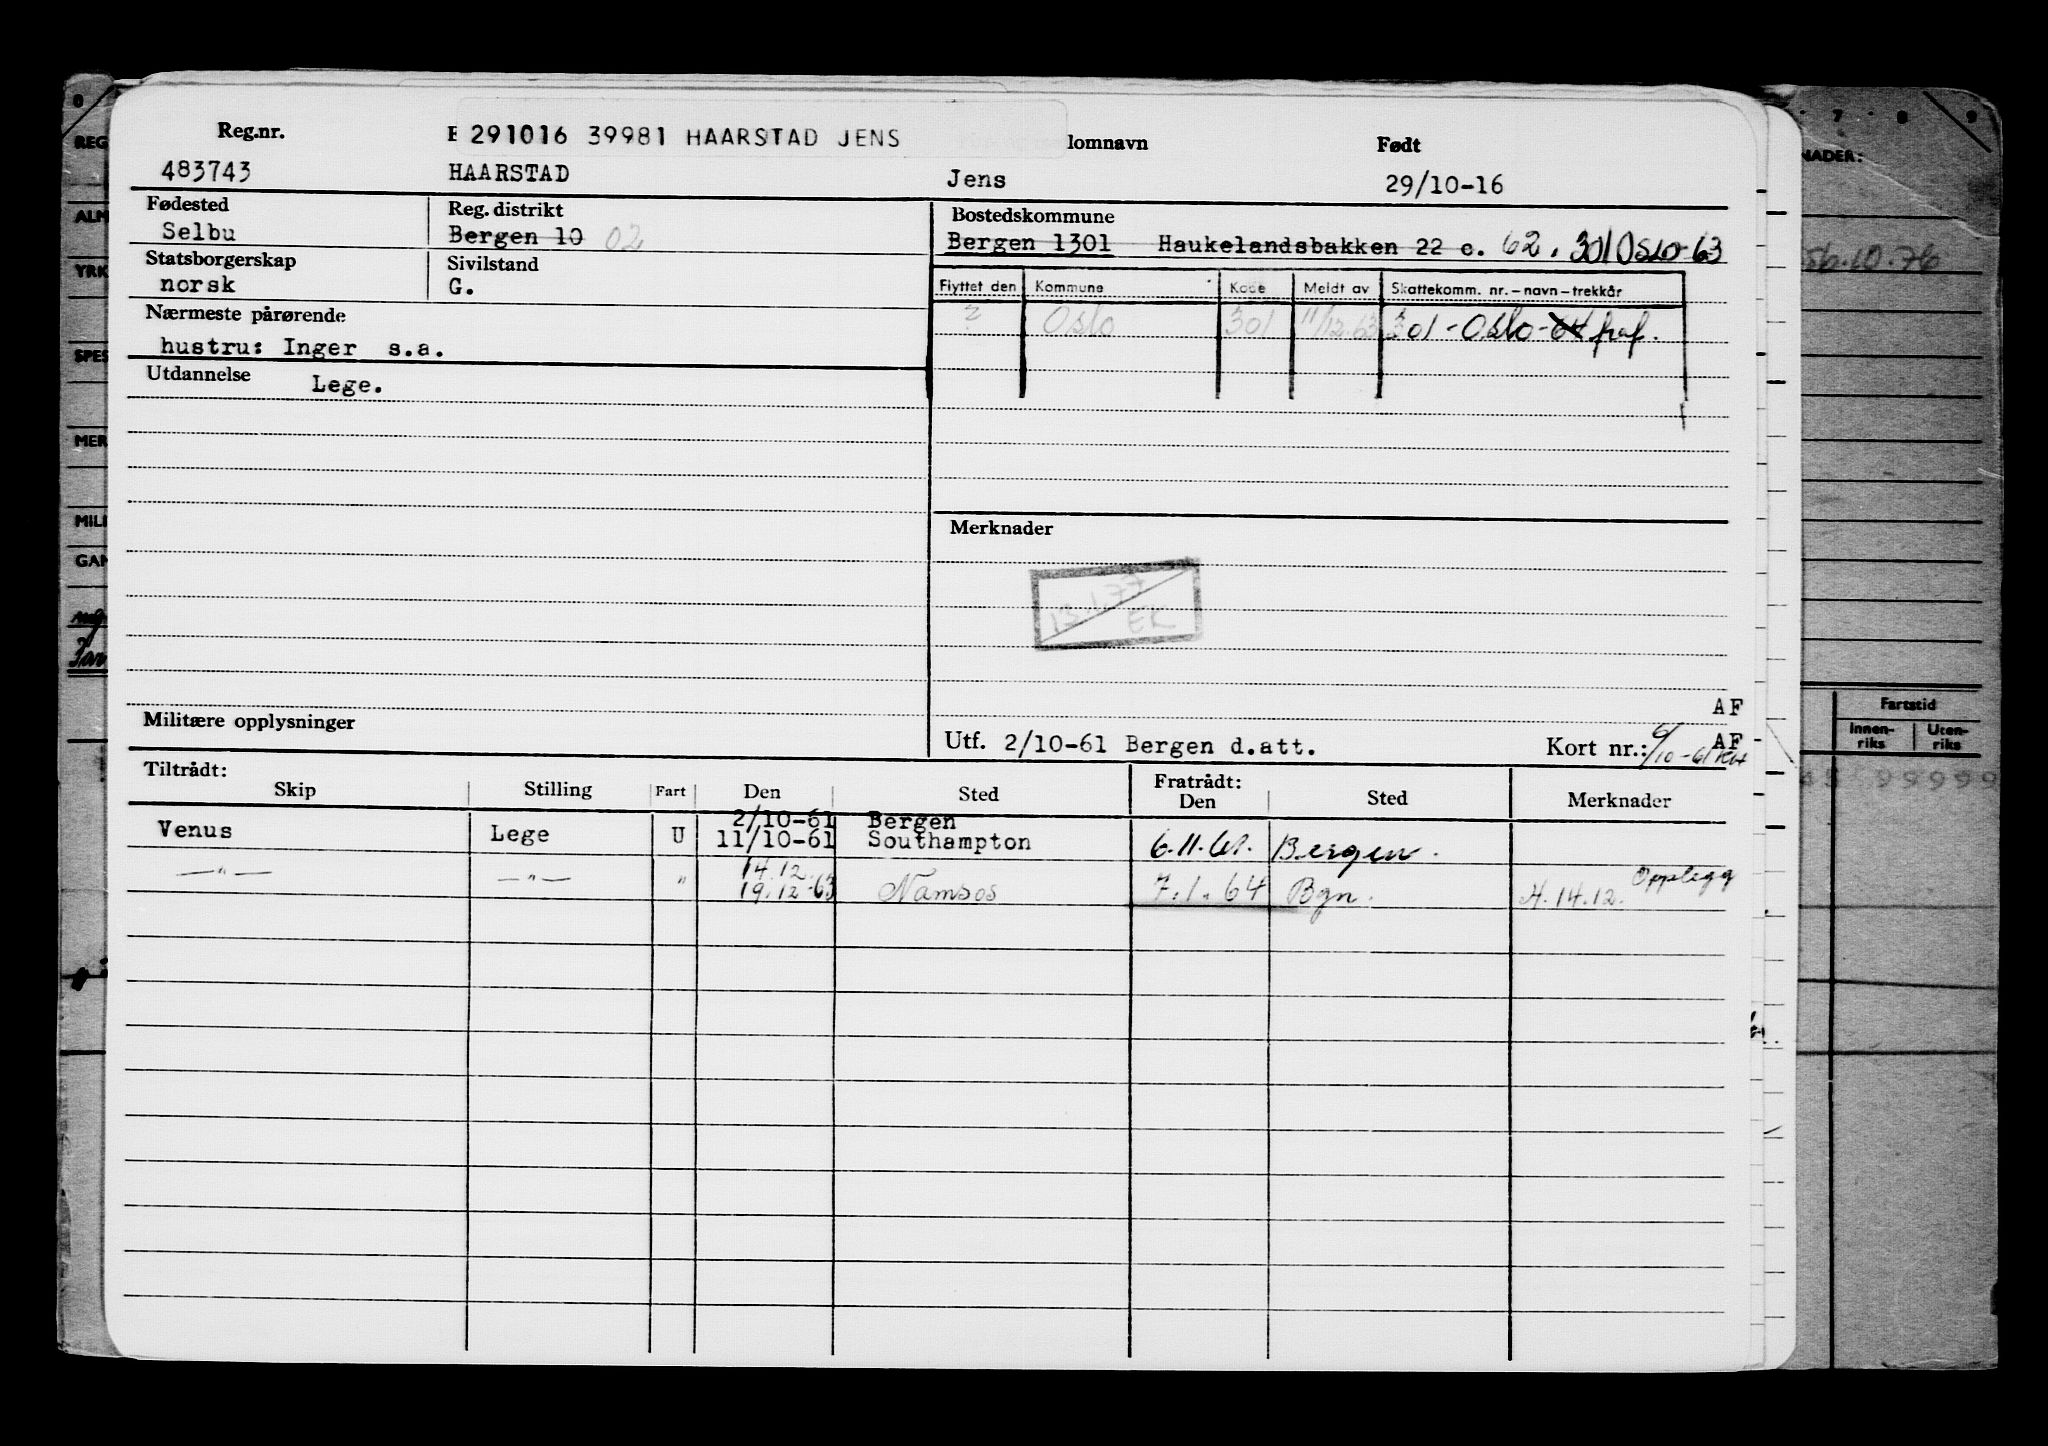 Reg.nr. 291016 39981 HAARSTAD JENS lomnavn Født
483743 HAARSTAD Jens 29/10-16
Fødested Reg. distrikt Bostedskommune
Selbu Bergen 10 02 Bergen 1301 Haukelandsbakken 22 c. 62. 301 Oslo-63
Statsborgerskap Sivilstand
norsk G.
Flyttet den Kommune Kode Meldt av Skattekomm. nr. – navn – trekkår
? Oslo 301 11/12.63 301 - Oslo - 64 fraf.
Nærmeste pårørende
hustru: Inger s.a.
Utdannelse Lege.
Merknader
13.1.77
EK
Militære opplysninger
AF
Utf. 2/10-61 Bergen d.att. Kort nr.: 6/10-61 AF
Tiltrådt: Fratrådt:
Skip Stilling Fart Den Sted Den Sted Merknader
2/10-61 Bergen
Venus Lege U 11/10-61 Southampton 6.11.61. Bergen.
14.12. Opplegg
—"— —"— " 19.12-63 Namsos 7.1.64 Bgn. H.14.12.
0
REG
ALM
YRK
SPES
MER
MILI
GAN
7 8 9
NADER:
56.10.76
Fartstid
Innen-
riks
Uten-
riks
99999